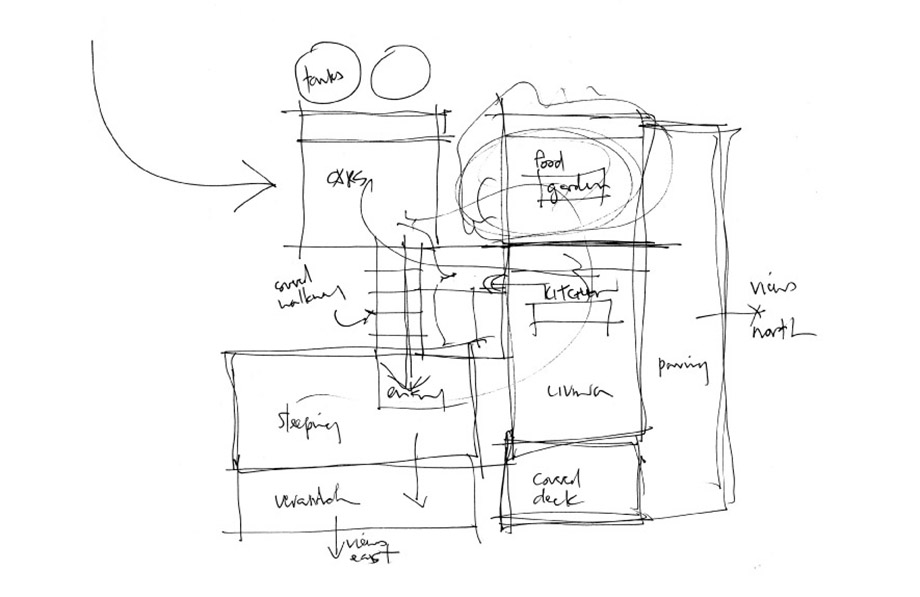 tanks
CARS
food
garden
covered
walkway
KITCHEN
views
north
paving
entry
LIVING
sleeping
verandah
covered
deck
views
east